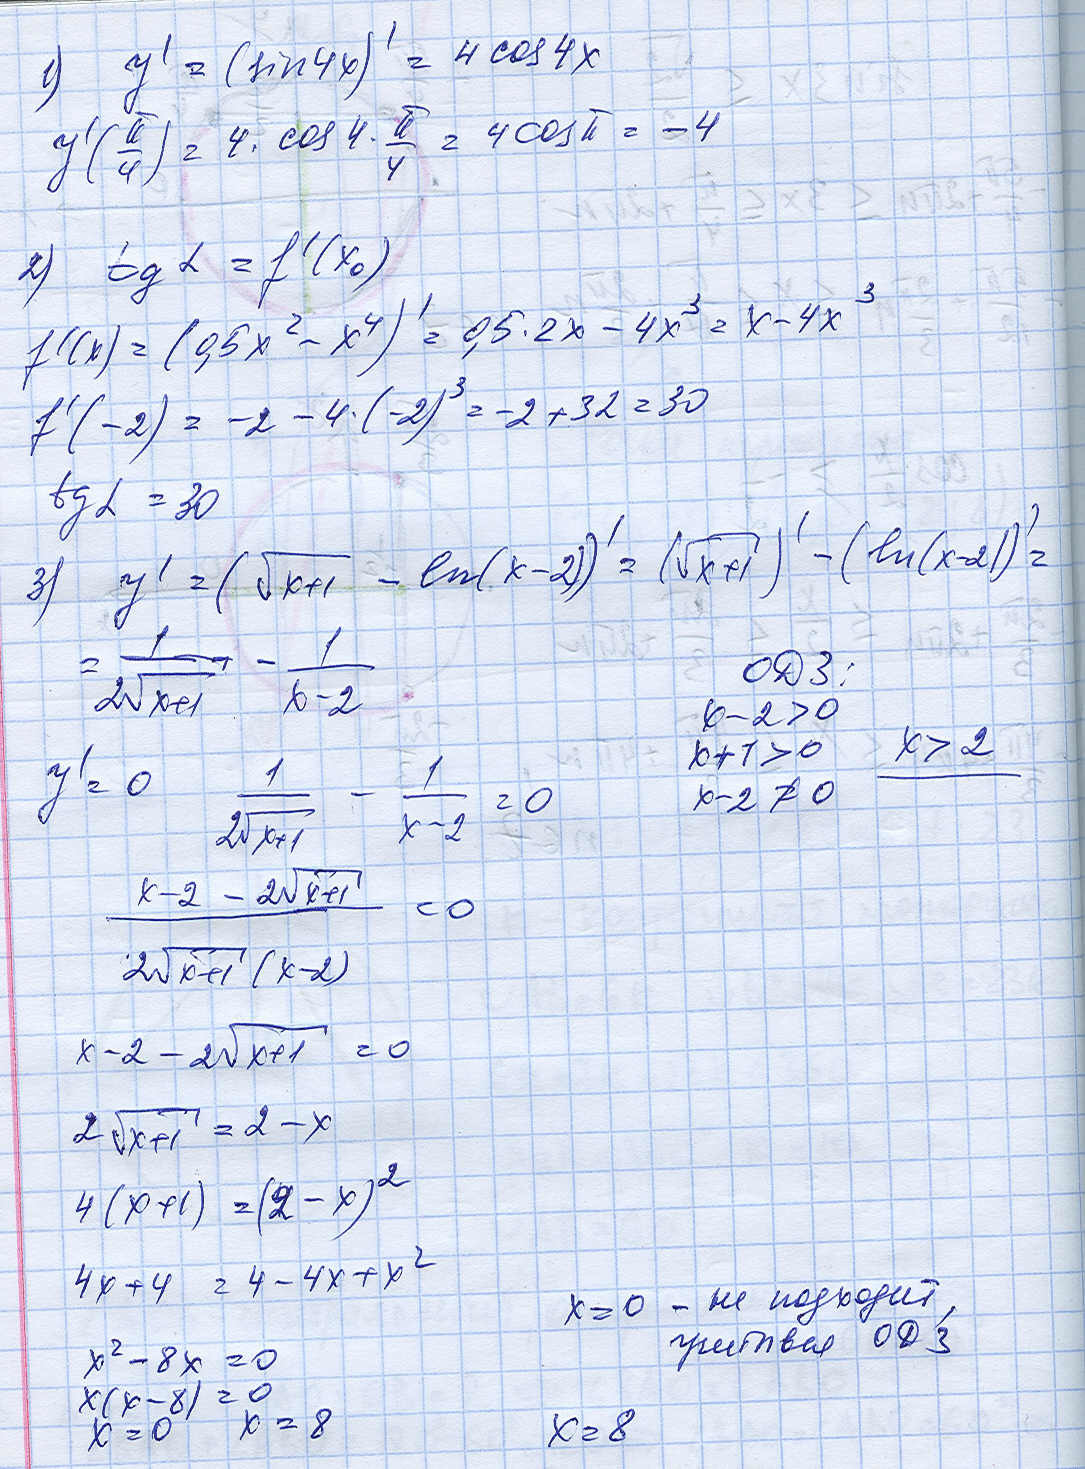 1) y' = (sin4x)' = 4 cos4x
y'(π/4) = 4 · cos 4 · π/4 = 4 cos π = -4
2) tg α = f'(x₀)
f'(x) = (0,5x² - x⁴)' = 0,5 · 2x - 4x³ = x - 4x³
f'(-2) = -2 - 4·(-2)³ = -2 + 32 = 30
tg α = 30
3) y' = (√(x+1) - ln(x-2))' = (√(x+1))' - (ln(x-2))' =
= 1/(2√(x+1)) - 1/(x-2)
ОДЗ:
x-2>0
x+1>0
x-2≠0
x>2
y' = 0 1/(2√(x+1)) - 1/(x-2) = 0
(x-2 - 2√(x+1))/(2√(x+1) (x-2)) = 0
x-2 - 2√(x+1) = 0
2√(x+1) = 2-x
4(x+1) = (2-x)²
4x+4 = 4-4x+x²
x²-8x = 0
x(x-8) = 0
x=0 x=8
x=0 - не подходит,
учитывая ОДЗ
x=8